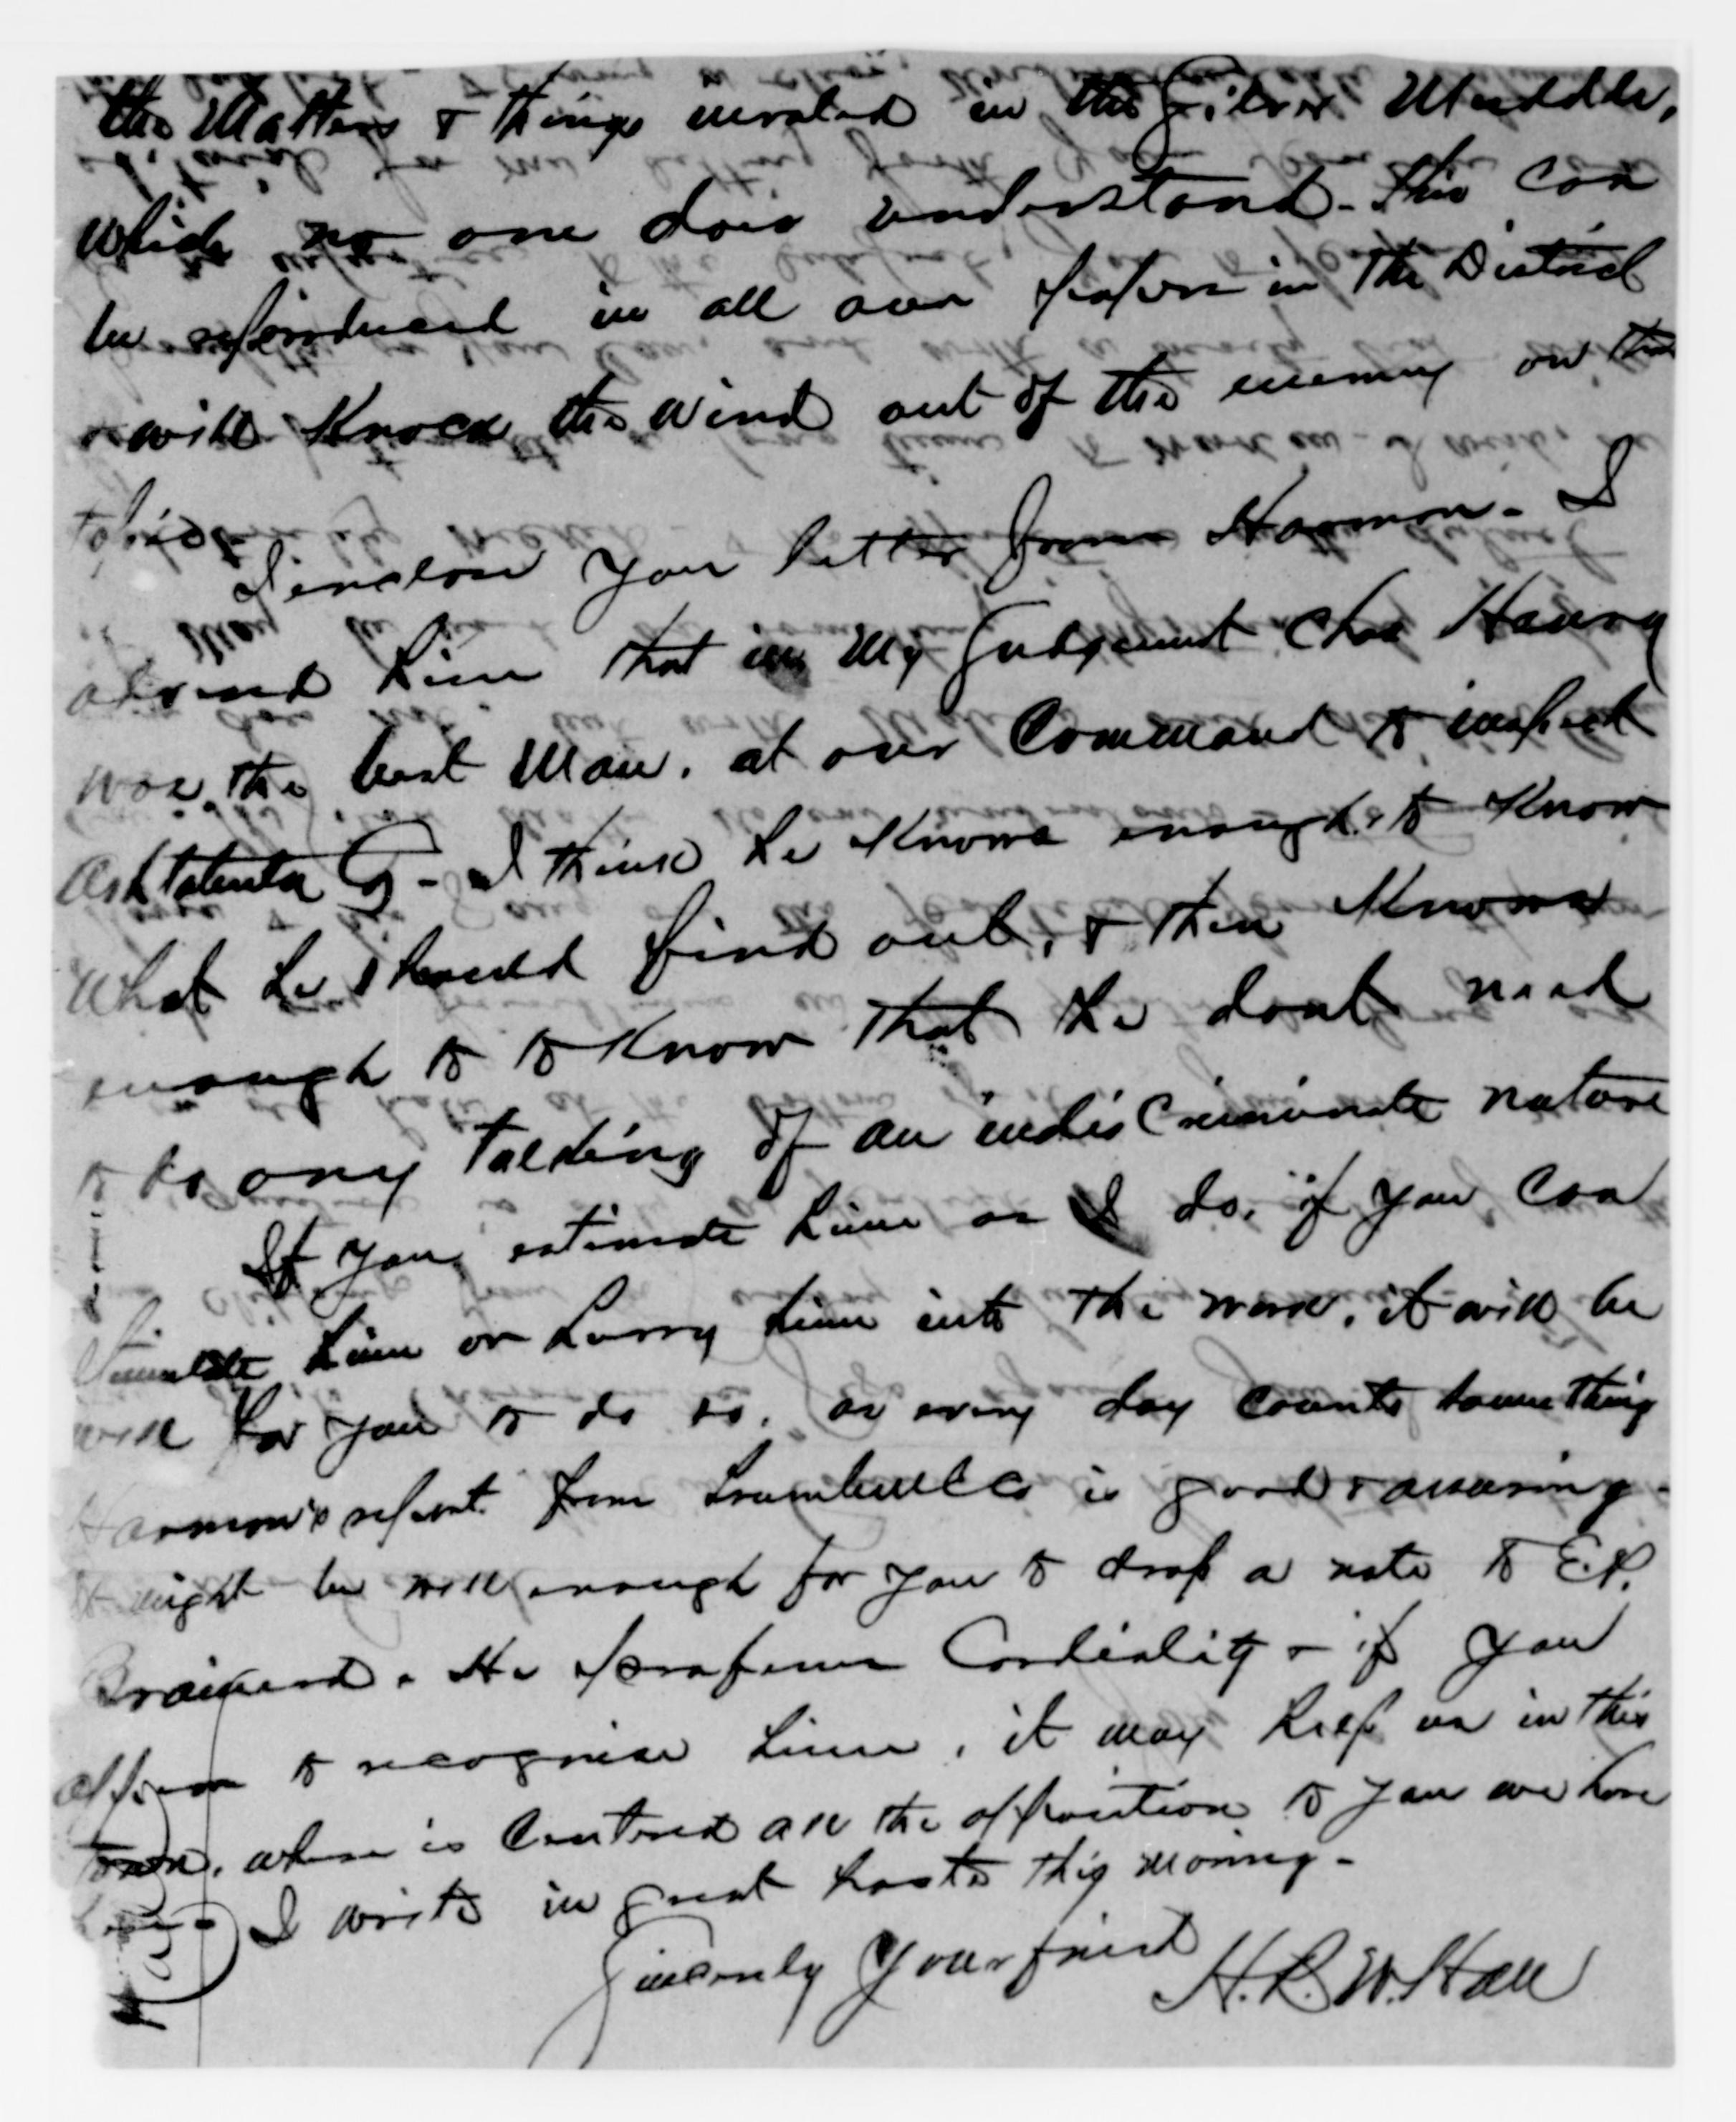 the Matters & things involved in the Silver Muddle,
which no one does understand - This can
be reproduced in all our papers in The District
& will Knock the wind out of the enemy on this
topic
I enclose you letter from Harmon - I
advised him that in My Judgement Chas Harvey
was the best Man, at our Command to inspect
Ashtabula Co - I think he Knows enough to Know
What he should find out, & then Knows
enough to to Know That he dont need
to do any Talking of an indiscriminate nature
If you estimate him as I do, if you can
Stimulate him or hurry him into the work, it will be
well for you to do so, as every day Counts something
Harmon's report from Trumbull Co is good & assuring -
It might be well enough for you to drop a note to E.P.
Brainerd. He professes Cordiality - if you
appear to recognise him, it may help us in this
town, where is Centered all the opposition to you we have
here - I write in great haste this morning -
Sincerely Your friend
H. R. W. Hall